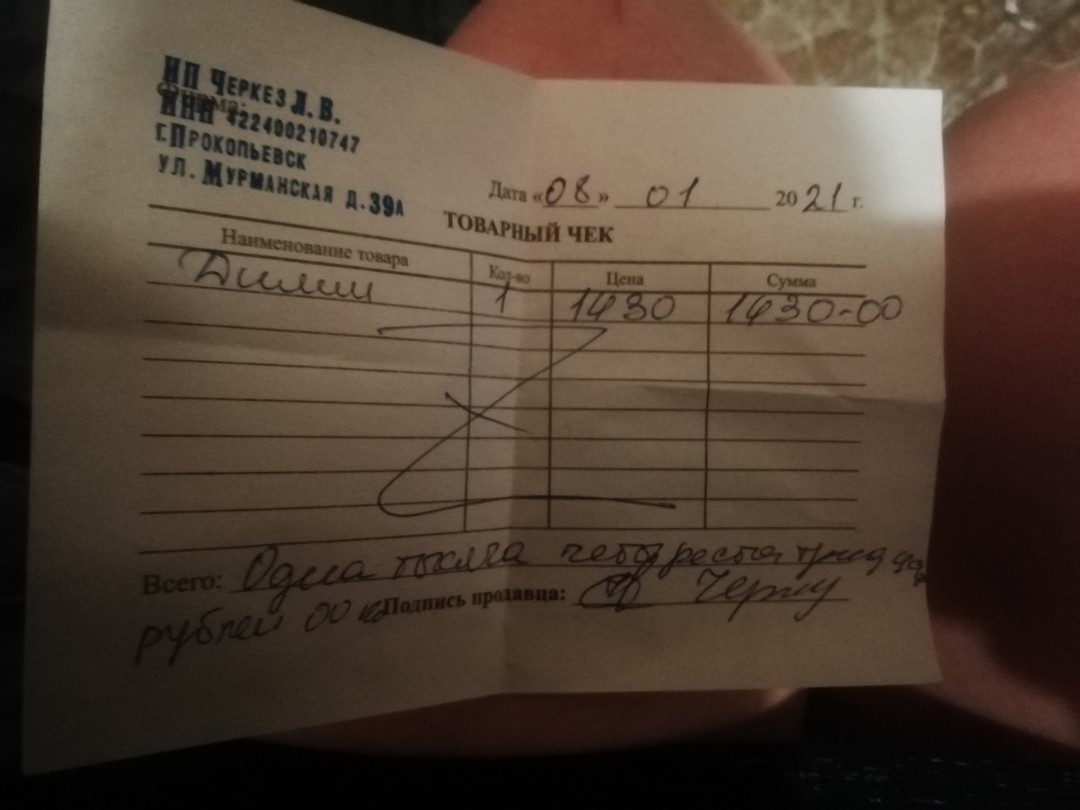 ИП ЧЕРКЕЗ Л.В.
Фирма:
ИНН 422400210747
Г.ПРОКОПЬЕВСК
УЛ. МУРМАНСКАЯ Д.39А
Дата «08» 01 2021 г.
ТОВАРНЫЙ ЧЕК
Наименование товара Кол-во Цена Сумма
1 1430 1430-00
Всего: Одна тысяча четыреста тридцать
рублей 00 к Подпись продавца: